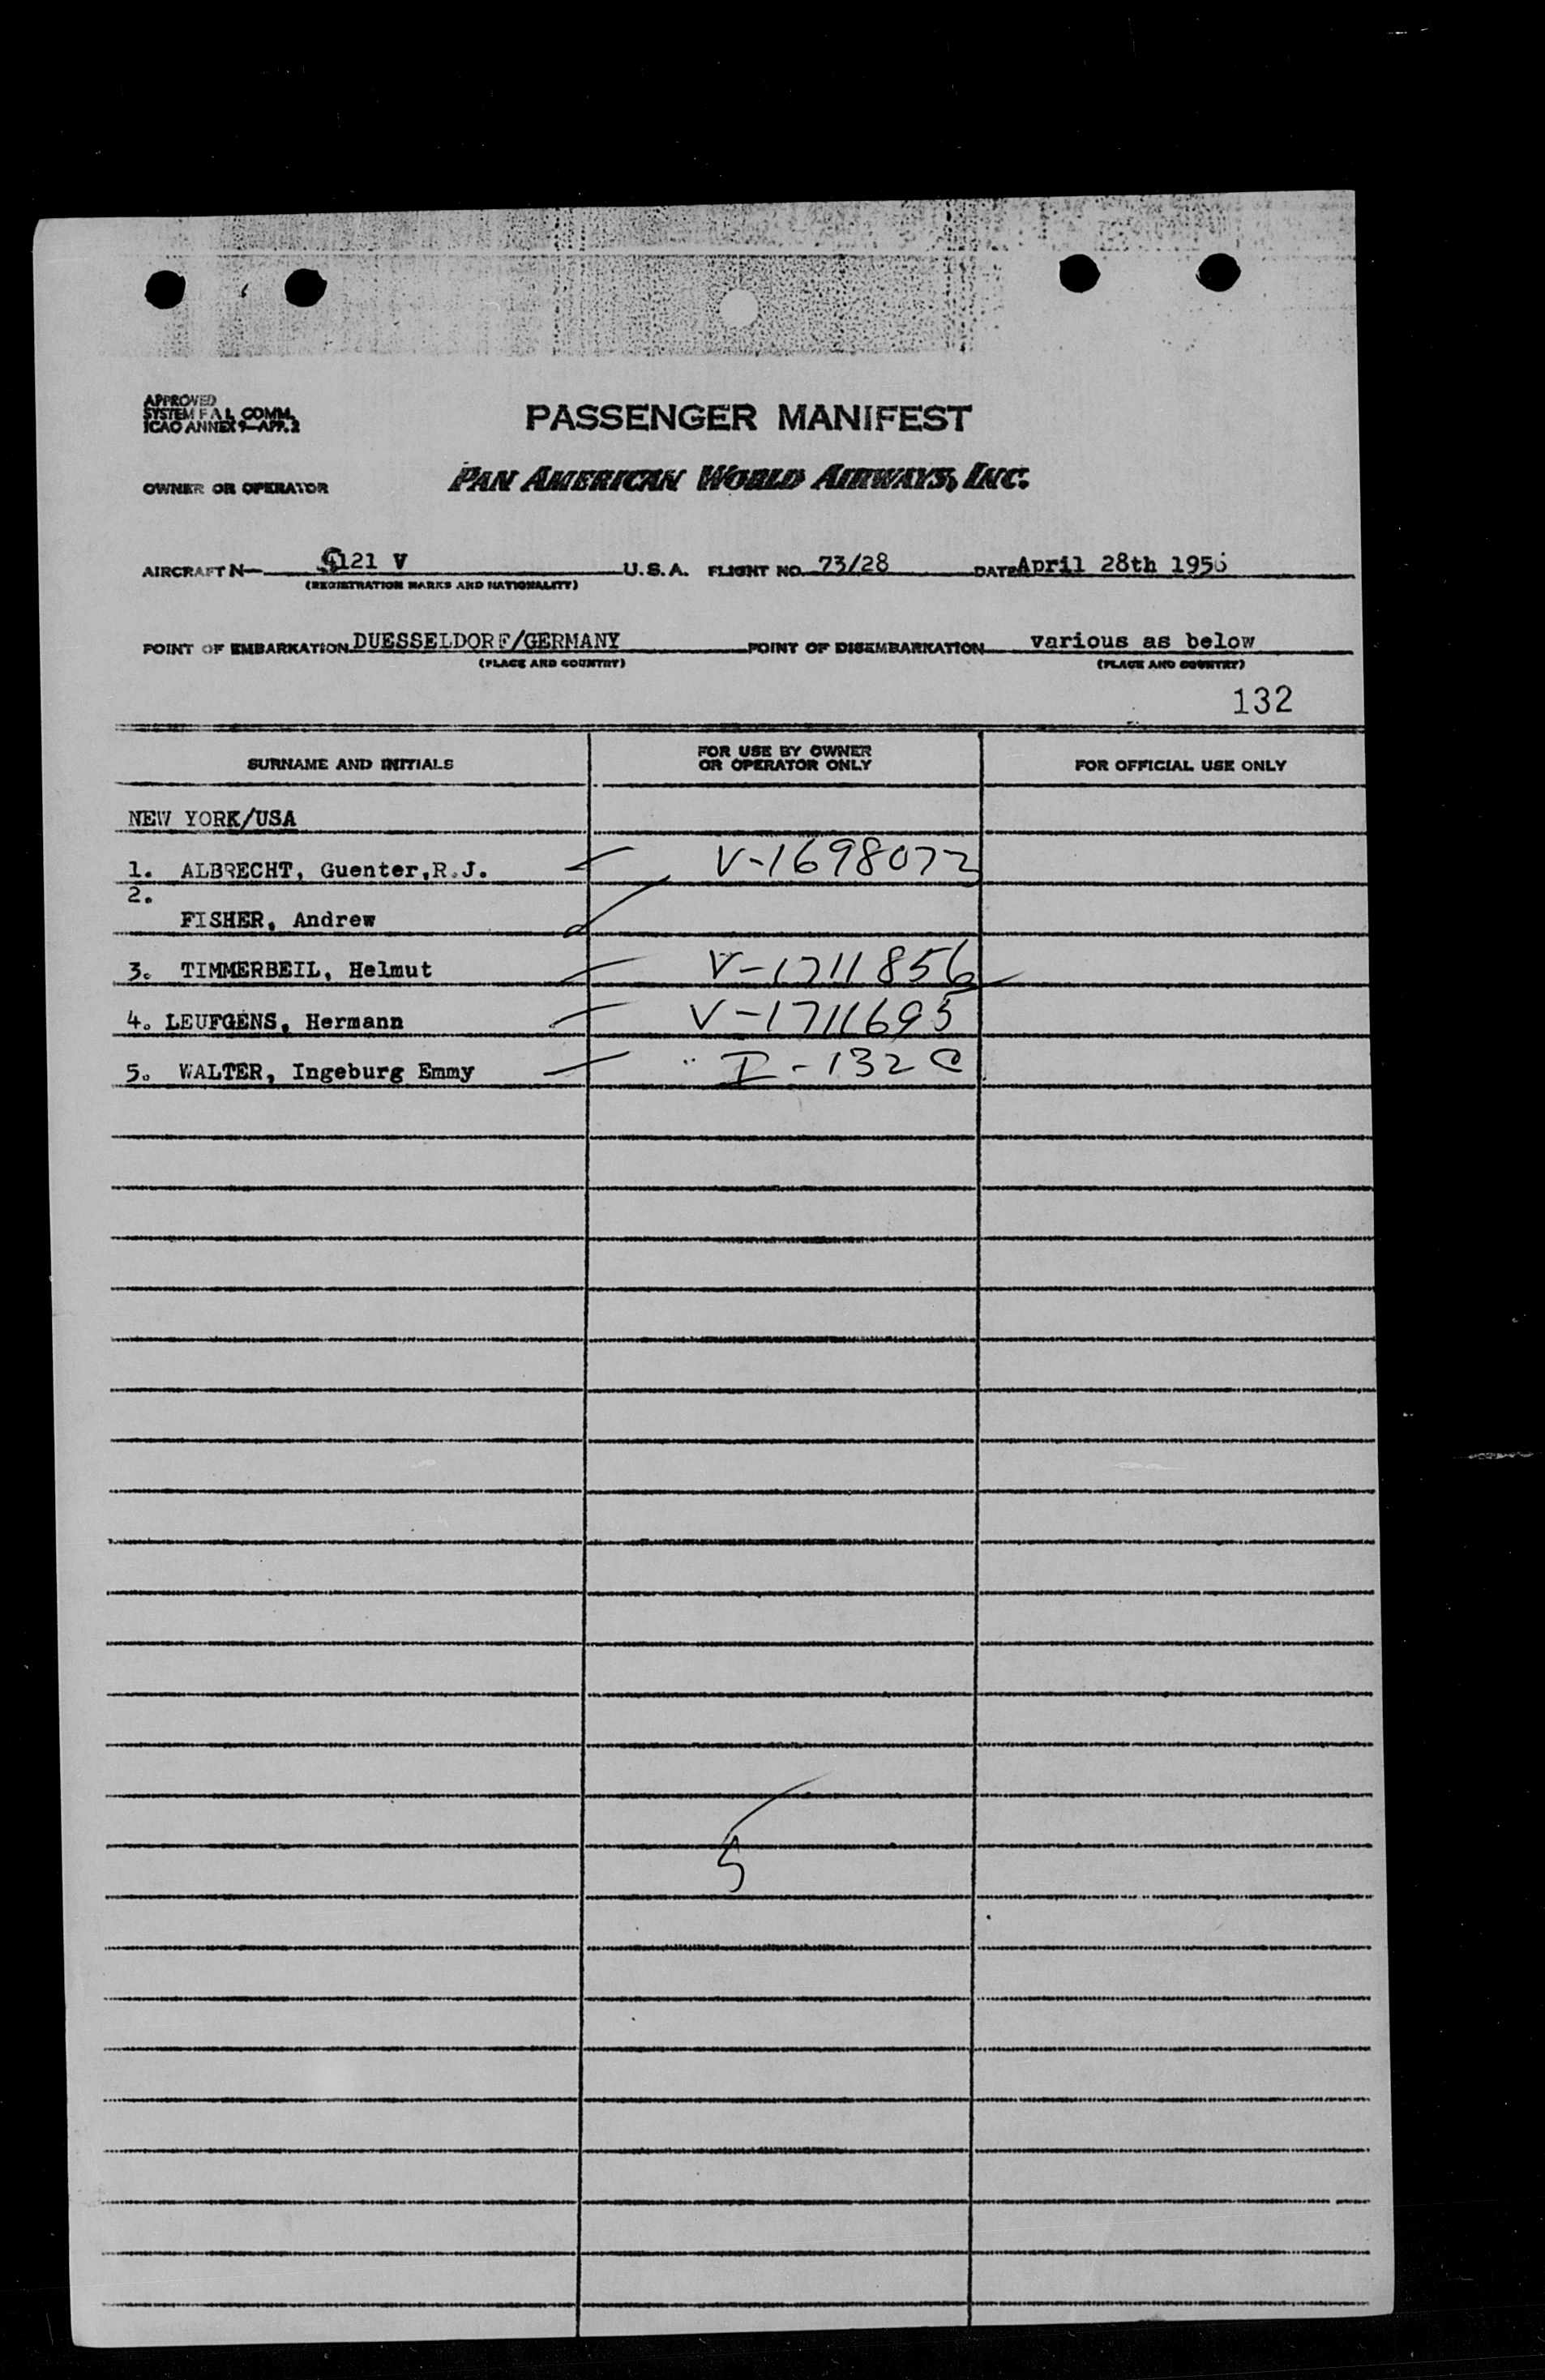 APPROVED
SYSTEM F A L COMM.
ICAO ANNEX 9—APP. 2
PASSENGER MANIFEST
OWNER OR OPERATOR PAN AMERICAN WORLD AIRWAYS, INC.
AIRCRAFT N— 121 V U.S.A. FLIGHT NO. 73/28 DATE April 28th 1956
(REGISTRATION MARKS AND NATIONALITY)
POINT OF EMBARKATION DUESSELDORF/GERMANY POINT OF DISEMBARKATION various as below
(PLACE AND COUNTRY) (PLACE AND COUNTRY)
132
SURNAME AND INITIALS FOR USE BY OWNER OR OPERATOR ONLY FOR OFFICIAL USE ONLY
NEW YORK/USA
1. ALBRECHT, Guenter,R.J. V-1698072
2.
FISHER, Andrew
3. TIMMERBEIL, Helmut V-1711856
4. LEUFGENS, Hermann V-1711695
5. WALTER, Ingeburg Emmy I-132 C
5